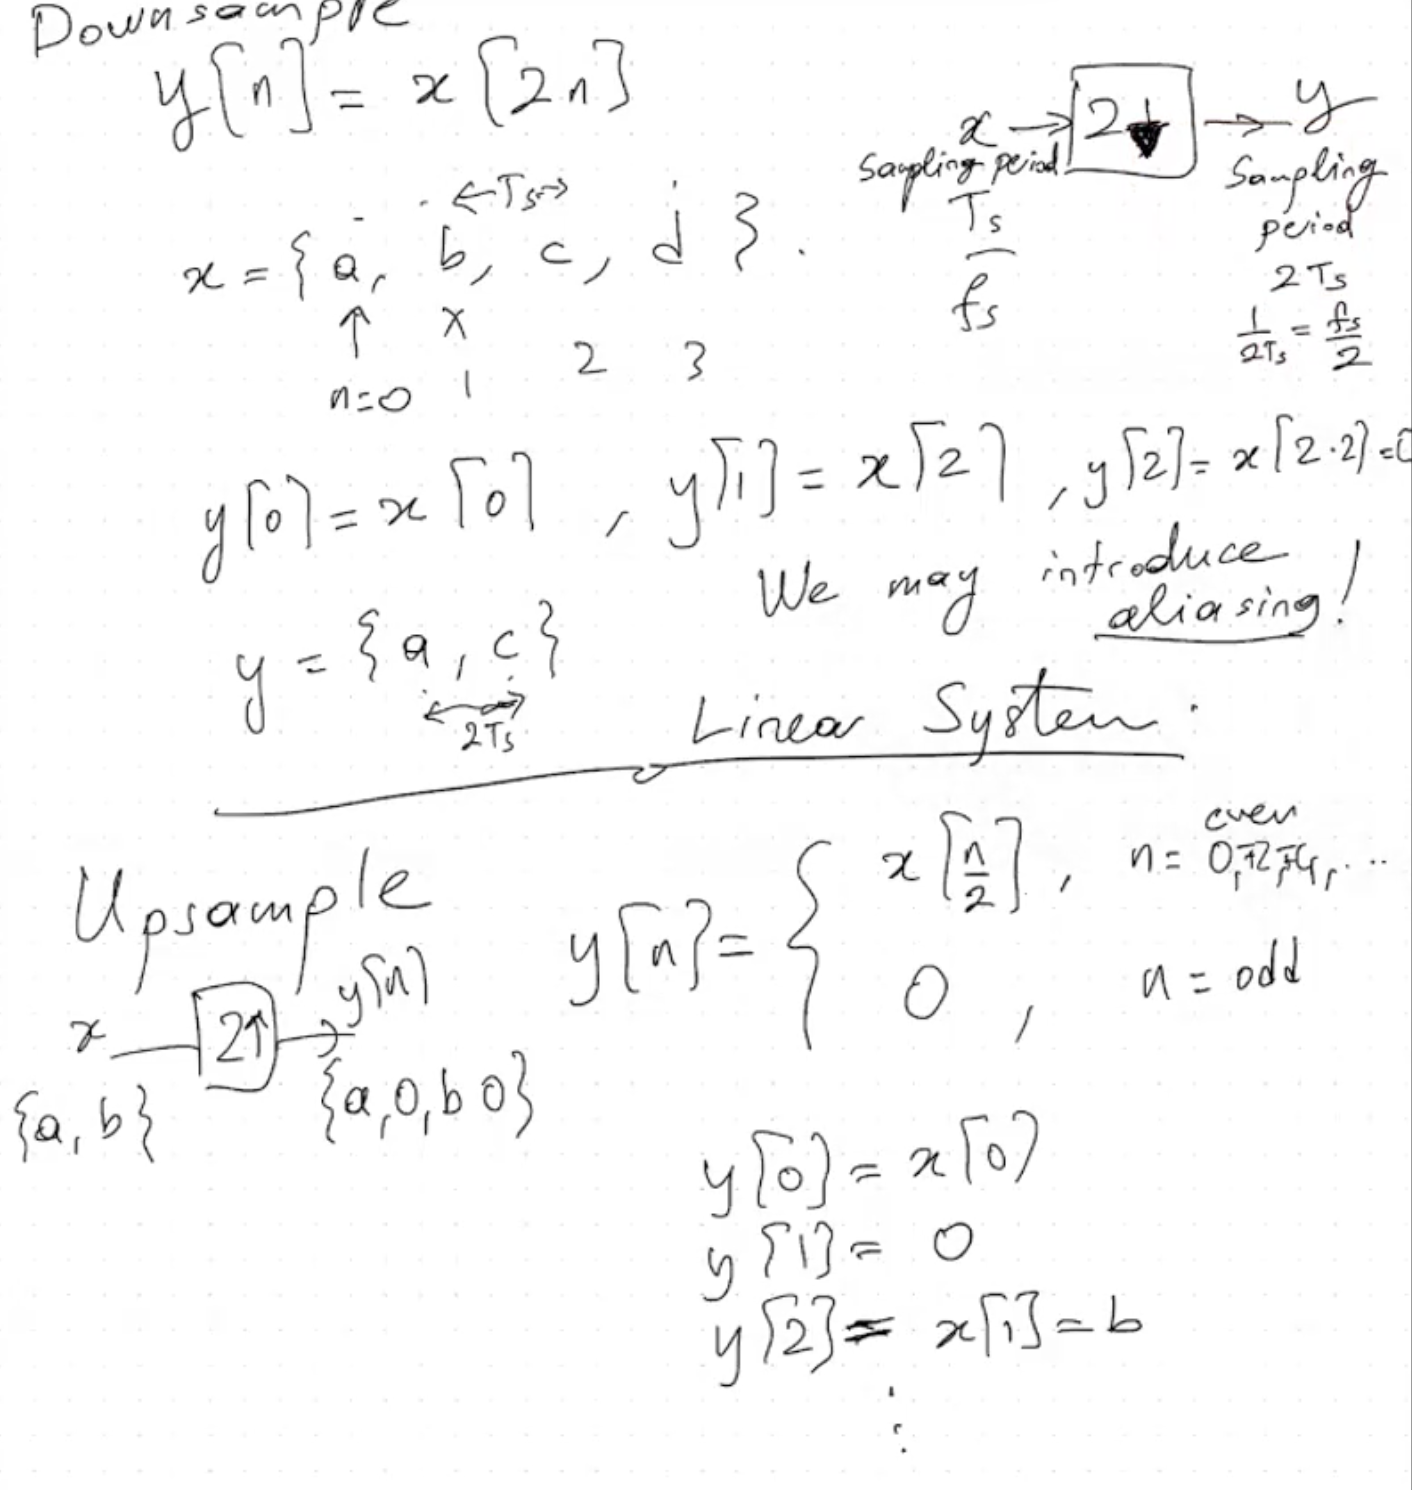 Downsample
y[n] = x[2n]
x → 2↓ → y
Sampling period Ts
fs
Sampling period 2Ts
1/2Ts = fs/2
←Ts→
x = { a, b, c, d } .
↑ x
n=0 1 2 3
y[0] = x[0] , y[1] = x[2] , y[2] = x[2·2] = 0
We may introduce aliasing!
y = { a, c }
←→
2Ts
Linear System:
Upsample
y[n] = { x[n/2] , n = 0, ∓2, ∓4, ... even
0 , n = odd
x 2↑ → y[n]
{a, b} {a, 0, b 0}
y[0] = x[0]
y[1] = 0
y[2] = x[1] = b
⋮